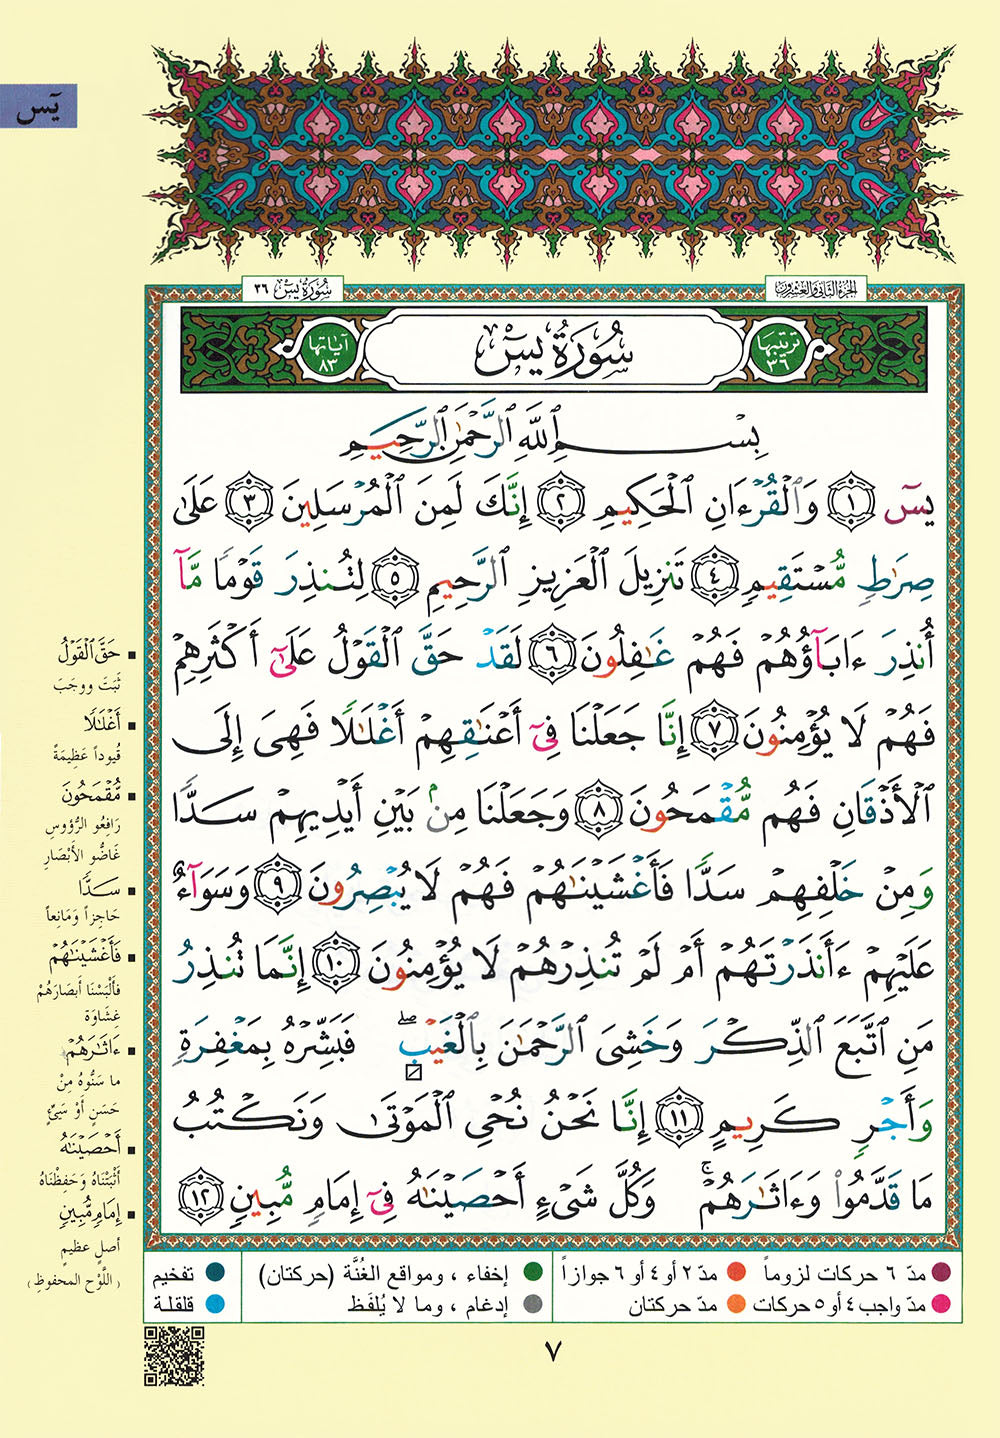 يسٓ
الجزء الثاني والعشرون
سُورَةُ يسٓ ٣٦
ترتيبها ٣٦
سُورَةُ يسٓ
آياتها ٨٣
بِسۡمِ ٱللَّهِ ٱلرَّحۡمَٰنِ ٱلرَّحِيمِ
يسٓ ١ وَٱلۡقُرۡءَانِ ٱلۡحَكِيمِ ٢ إِنَّكَ لَمِنَ ٱلۡمُرۡسَلِينَ ٣ عَلَىٰ
صِرَٰطٖ مُّسۡتَقِيمٖ ٤ تَنزِيلَ ٱلۡعَزِيزِ ٱلرَّحِيمِ ٥ لِتُنذِرَ قَوۡمٗا مَّآ
أُنذِرَ ءَابَآؤُهُمۡ فَهُمۡ غَٰفِلُونَ ٦ لَقَدۡ حَقَّ ٱلۡقَوۡلُ عَلَىٰٓ أَكۡثَرِهِمۡ
فَهُمۡ لَا يُؤۡمِنُونَ ٧ إِنَّا جَعَلۡنَا فِيٓ أَعۡنَٰقِهِمۡ أَغۡلَٰلٗا فَهِيَ إِلَى
ٱلۡأَذۡقَانِ فَهُم مُّقۡمَحُونَ ٨ وَجَعَلۡنَا مِنۢ بَيۡنِ أَيۡدِيهِمۡ سَدّٗا
وَمِنۡ خَلۡفِهِمۡ سَدّٗا فَأَغۡشَيۡنَٰهُمۡ فَهُمۡ لَا يُبۡصِرُونَ ٩ وَسَوَآءٌ
عَلَيۡهِمۡ ءَأَنذَرۡتَهُمۡ أَمۡ لَمۡ تُنذِرۡهُمۡ لَا يُؤۡمِنُونَ ١٠ إِنَّمَا تُنذِرُ
مَنِ ٱتَّبَعَ ٱلذِّكۡرَ وَخَشِيَ ٱلرَّحۡمَٰنَ بِٱلۡغَيۡبِۖ فَبَشِّرۡهُ بِمَغۡفِرَةٖ
وَأَجۡرٖ كَرِيمٍ ١١ إِنَّا نَحۡنُ نُحۡيِ ٱلۡمَوۡتَىٰ وَنَكۡتُبُ
مَا قَدَّمُواْ وَءَاثَٰرَهُمۡۚ وَكُلَّ شَيۡءٍ أَحۡصَيۡنَٰهُ فِيٓ إِمَامٖ مُّبِينٖ ١٢
حَقَّ ٱلۡقَوۡلُ
ثَبَتَ ووجَبَ
أَغۡلَٰلٗا
قُيوداً عَظِيمَةً
مُّقۡمَحُونَ
رَافِعُو الرُّؤوسِ
غَاضُّو الأَبْصَارِ
سَدّٗا
حَاجِزاً وَمَانِعاً
فَأَغۡشَيۡنَٰهُمۡ
فألْبَسْنَا أبصَارَهُمْ
غِشَاوَة
ءَاثَٰرَهُمۡ
ما سَنُّوهُ مِنْ
حَسَنٍ أَوْ سَيِّئٍ
أَحۡصَيۡنَٰهُ
أَثْبَتْنَاهُ وَحَفِظْنَاهُ
إِمَامٖ مُّبِينٖ
أصلٍ عظيمٍ
( اللَّوْح المحفوظ )
مدّ ٦ حركات لزوماً مدّ ٢ أو ٤ أو ٦ جوازاً إخفاء ، ومواقع الغُنَّة (حركتان) تفخيم
مدّ واجب ٤ أو ٥ حركات مدّ حركتان إدغام ، وما لا يُلفَظ قلقلة
٧